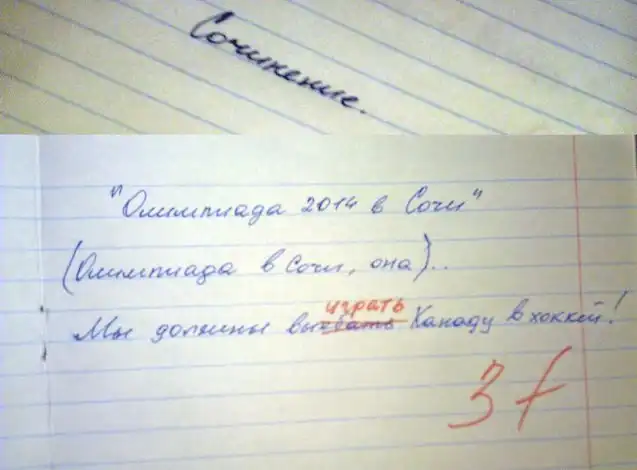 Сочинение.
"Олимпиада 2014 в Сочи"
(Олимпиада в Сочи, она)..
играть
Мы должны выебать Канаду в хоккей!
3+